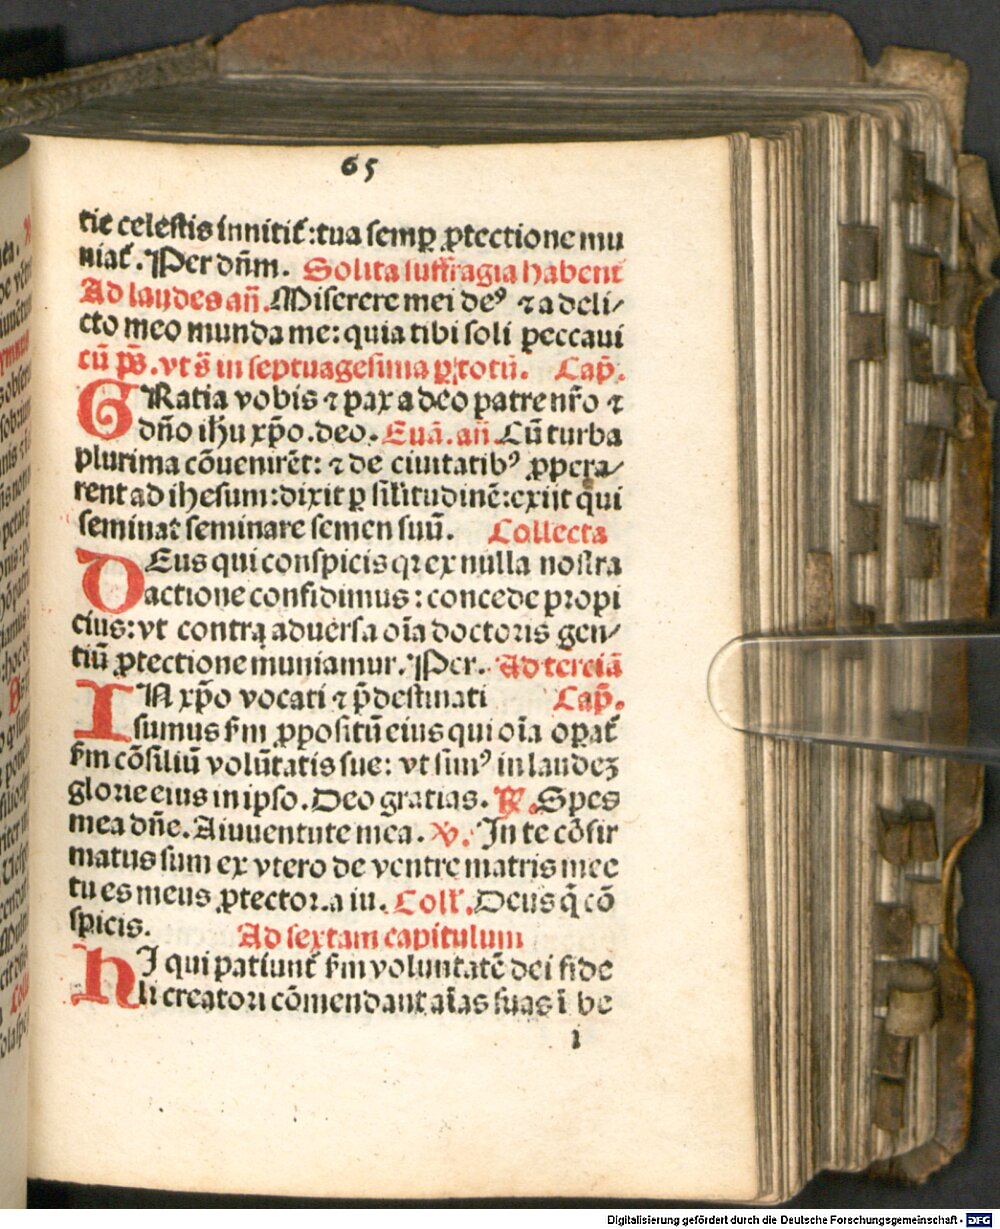 65
tie celestis innitit̃: tua semꝑ ꝓtectione mu
niat̃. Per dñm. Solita suffragia habent
Ad laudes añ. Miserere mei deꝰ ⁊ a deli/
cto meo munda me: quia tibi soli peccaui
cũ p̃s. vt s̃ in septuagesima ꝑ totũ. Cap̃.
GRatia vobis ⁊ pax a deo patre nr̃o ⁊
dño ihũ xp̃o. deo. Euã. añ. Cũ turba
plurima cõuenirẽt: ⁊ de ciuitatibꝰ ꝓpera/
rent ad ihesum: dixit ꝑ sil̃itudinẽ: exijt qui
seminat seminare semen suũ. Collecta
DEus qui conspicis qꝛ ex nulla nostra
actione confidimus: concede propi
cius: vt contra aduersa oĩa doctoris gen/
tiũ ꝓtectione muniamur. Per. Ad terciã
IN xp̃o vocati ⁊ p̃destinati Cap̃.
sumus ẜm ꝓpositũ eius qui oĩa operat̃
ẜm cõsiliũ volũtatis sue: vt simꝰ in laudeꝫ
glorie eius in ipso. Deo gratias. ℟. Spes
mea dñe. A iuuentute mea. ℣. In te cõfir
matus sum ex vtero de ventre matris mee
tu es meus ꝓtector. a iu. Coll̃. Deus q̃ cõ
spicis. Ad sextam capitulum
HI qui patiunt̃ ẜm voluntatẽ dei fide
li creatori cõmendant aĩas suas ĩ be
i
Digitalisierung gefördert durch die Deutsche Forschungsgemeinschaft - DFG